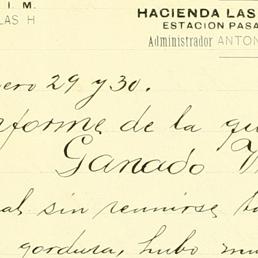 I. M.
LAS H
HACIENDA LAS
ESTACION PASA
Administrador ANTON
ero 29 y 30.
nforme de la qu
Ganado V
al sin reunirse to
gordura, hubo mu